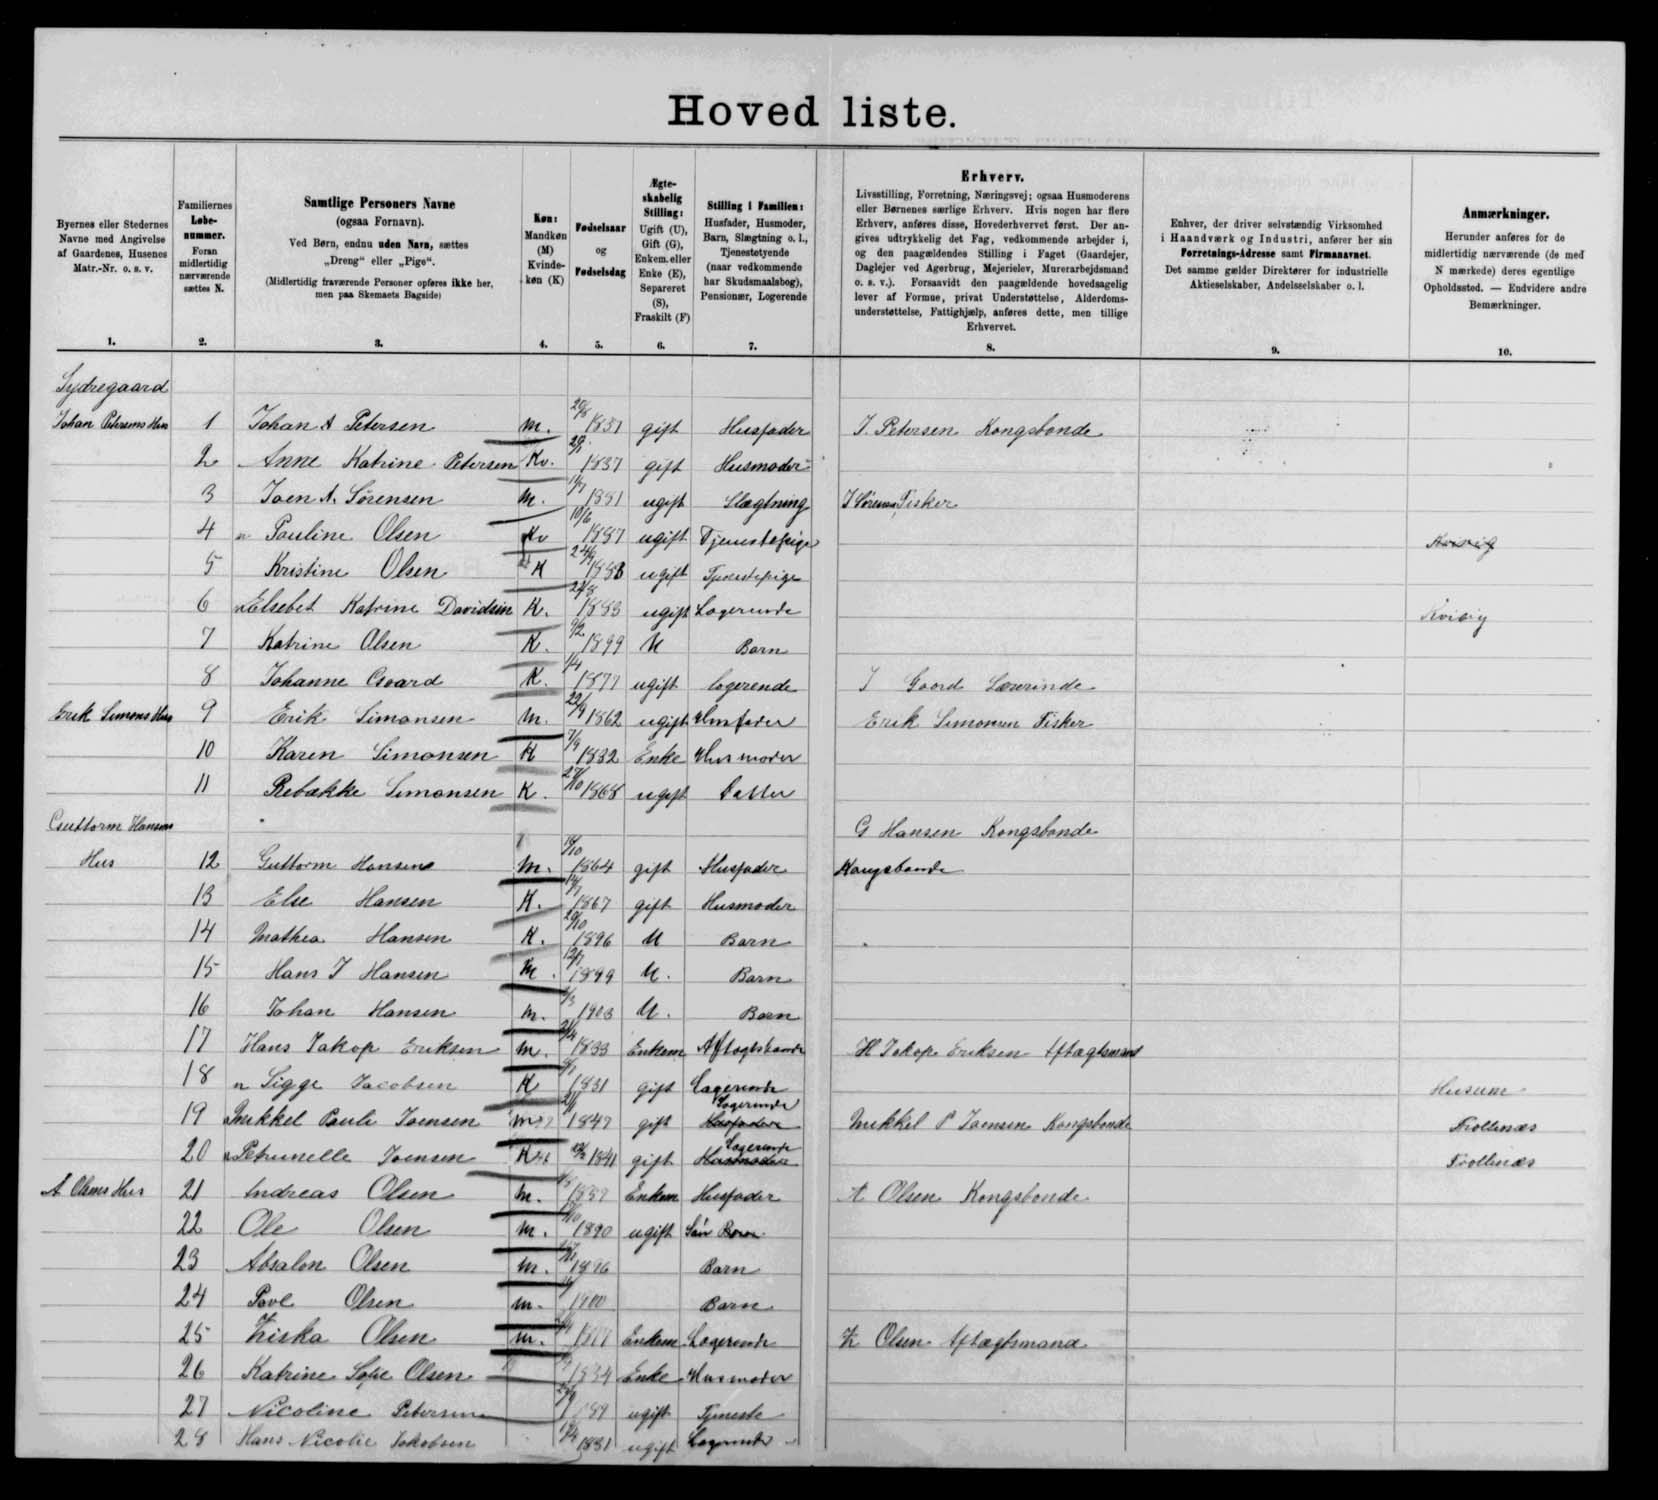 Hoved liste.
Byernes eller Stedernes
Navne med Angivelse
af Gaardenes, Husenes
Matr.-Nr. o. s. v.
Familiernes
Løbe-
nummer.
Foran
midlertidig
nærværende
sættes N.
Samtlige Personers Navne
(ogsaa Fornavn).
Ved Børn, endnu uden Navn, sættes
„Dreng" eller „Pige".
(Midlertidig fraværende Personer opføres ikke her,
men paa Skemaets Bagside)
Køn:
Mandkøn
(M)
Kvinde-
køn (K)
Fødselsaar
og
Fødselsdag
Ægte-
skabelig
Stilling:
Ugift (U),
Gift (G),
Enkem. eller
Enke (E),
Separeret
(S),
Fraskilt (F)
Stilling i Familien:
Husfader, Husmoder,
Barn, Slægtning o. l.,
Tjenestetyende
(naar vedkommende
har Skudsmaalsbog),
Pensionær, Logerende
Erhverv.
Livsstilling, Forretning, Næringsvej; ogsaa Husmoderens
eller Børnenes særlige Erhverv. Hvis nogen har flere
Erhverv, anføres disse, Hovederhvervet først. Der an-
gives udtrykkelig det Fag, vedkommende arbejder i,
og den paagældendes Stilling i Faget (Gaardejer,
Daglejer ved Agerbrug, Mejerielev, Murerarbejdsmand
o. s. v.). Forsaavidt den paagældende hovedsagelig
lever af Formue, privat Understøttelse, Alderdoms-
understøttelse, Fattighjælp, anføres dette, men tillige
Erhvervet.
Enhver, der driver selvstændig Virksomhed
i Haandværk og Industri, anfører her sin
Forretnings-Adresse samt Firmanavnet.
Det samme gælder Direktører for industrielle
Aktieselskaber, Andelsselskaber o. l.
Anmærkninger.
Herunder anføres for de
midlertidig nærværende (de med
N mærkede) deres egentlige
Opholdssted. — Endvidere andre
Bemærkninger.
1. 2. 3. 4. 5. 6. 7. 8. 9. 10.
Sydregaard
Johan Petersens Hus 1 Johan A Petersen M. 1831 gift Husfader J. Petersen Kongsbonde
2 Anne Katrine Petersen Kv. 1837 gift Husmoder
3 Joen A. Sørensen M. 1881 ugift Slægtning J Sørensen Fisker
4 n Pauline Olsen Kv 10/6 1887 ugift Tjenestepige Kvivig
5 Kristine Olsen K 1888 ugift Tjenestepige
6 n Elsebet Katrine Davidsen K. 1883 ugift Logerende Kvivig
7 Katrine Olsen K. 9/2 1899 U Barn
8 Johanne Gaard K. 1/4 1877 ugift logerende J Gaard Lærerinde
Erik Simons Hus 9 Erik Simonsen M. 22/9 1862 ugift Husfader Erik Simonsen Fisker
10 Karen Simonsen K 7/9 1832 Enke Husmoder
11 Rebække Simonsen K. 27/10 1868 ugift Datter
Guttorm Hansens G Hansen Kongsbonde
Hus 12 Guttorm Hansen M. 1864 gift Husfader Kongsbonde
13 Else Hansen K. 1867 gift Husmoder
14 Mathea Hansen K. 20/10 1896 U Barn
15 Hans J Hansen M. 1899 U. Barn
16 Johan Hansen M. 1903 U. Barn
17 Hans Jakop Eriksen M. 1833 Enkem Aftagtsmand H Jakop Eriksen Aftagtsmand
18 n Sigge Jacobsen K 1831 gift Logerende Husum
19 n Mikkel Pauli Joensen M 1847 gift Husfader Logerende Mikkel P Joensen Kongsbonde Trollenæs
20 n Petrunelle Joensen K 1841 gift Husmoder Logerende Trollenæs
A Olsens Hus 21 Andreas Olsen M. Enkem Husfader A Olsen Kongsbonde
22 Ole Olsen M. 1890 ugift Søn Barn
23 Absalon Olsen M. 1896 Barn
24 Povl Olsen M. 1900 Barn
25 Ziska Olsen M. Enkem Logerende Z Olsen Aftægtsmand
26 Katrine Sofie Olsen 1834 Enke Husmoder
27 Nicoline Petersen ugift Tjeneste
28 Hans Nicolie Jakobsen 1881 ugift Logerende